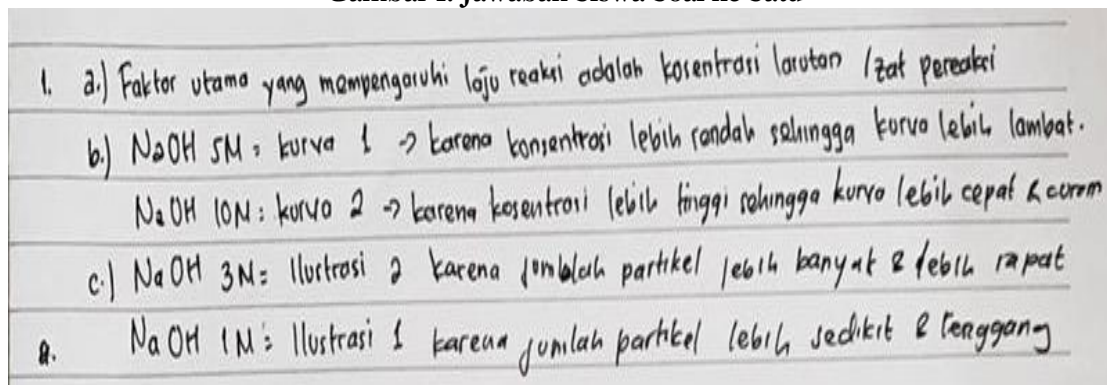 1. a.) Faktor utama yang mempengaruhi laju reaksi adalah kosentrasi larutan / zat pereaksi
b.) NaOH 5M : kurva 1 → karena konsentrasi lebih rendah sehingga kurva lebih lambat.
NaOH 10M : kurva 2 → karena kosentrasi lebih tinggi sehingga kurva lebih cepat & curam
c.) NaOH 3M : Ilustrasi 2 karena jumlah partikel lebih banyak & lebih rapat
NaOH 1M : Ilustrasi 1 karena jumlah partikel lebih sedikit & renggang